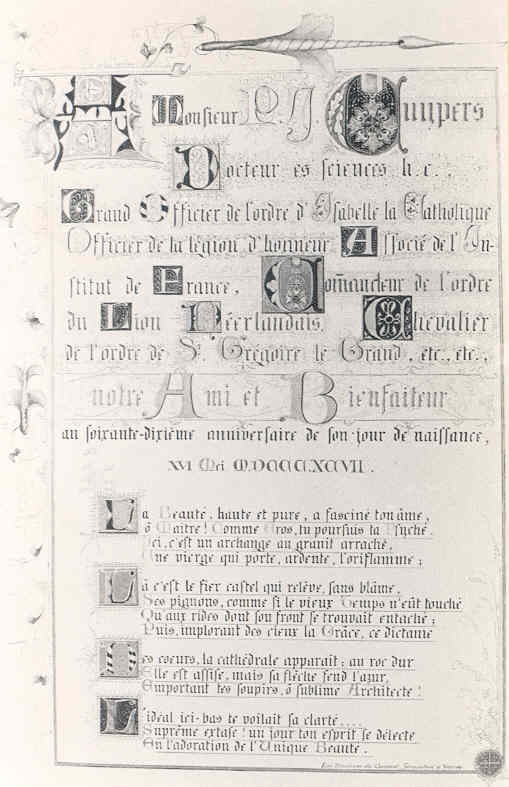 A Monsieur P. J. H. Cuijpers
Docteur es sciences h. c.,
Grand Officier de l'ordre d'Isabelle la Catholique
Officier de la légion d'honneur Associé de l'In-
stitut de France, Commandeur de l'ordre
du Lion Néerlandais, Chevalier
de l'ordre de St. Grégoire le Grand, etc., etc.,
notre Ami et Bienfaiteur
au soixante-dixième anniversaire de son jour de naissance,
XVI Mei MDCCCXCVII.
La Beauté, haute et pure, a fasciné ton âme,
ô Maître! Comme Eros, tu poursuis ta Psyché.
Ici, c'est un archange au granit arraché,
Une vierge qui porte, ardente, l'oriflamme;
Là c'est le fier castel qui relève, sans blâme,
Ses pignons, comme si le vieux Temps n'eût touché
Qu'aux rides dont son front se trouvait entaché;
Puis, implorant des cieux la Grâce, ce dictame
Des coeurs, la cathédrale apparait; au roc dur
Elle est assise, mais sa flèche fend l'azur,
Emportant tes soupirs, ô sublime Architecte!
L'idéal ici-bas te voilait sa clarté....
Suprème extase! un jour ton esprit se délecte
En l'adoration de l'Unique Beauté.